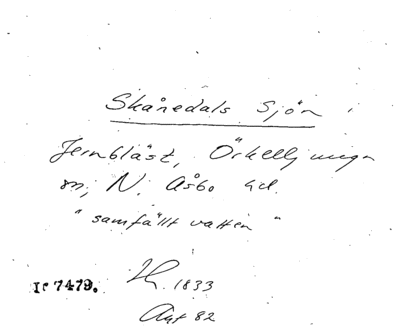 Skånedals Sjön
Jernbläst, Örkelljunga
sn, N. Åsbo hd.
"samfällt vatten"
1833
IF 7479.
Avt 82